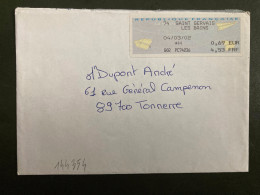 REPUBLIQUE FRANCAISE
74 SAINT GERVAIS
LES BAINS
04/03/02
0,69 EUR
4,53 FRF
Dupont André
61 rue Général Campenon
89700 Tonnerre
144354